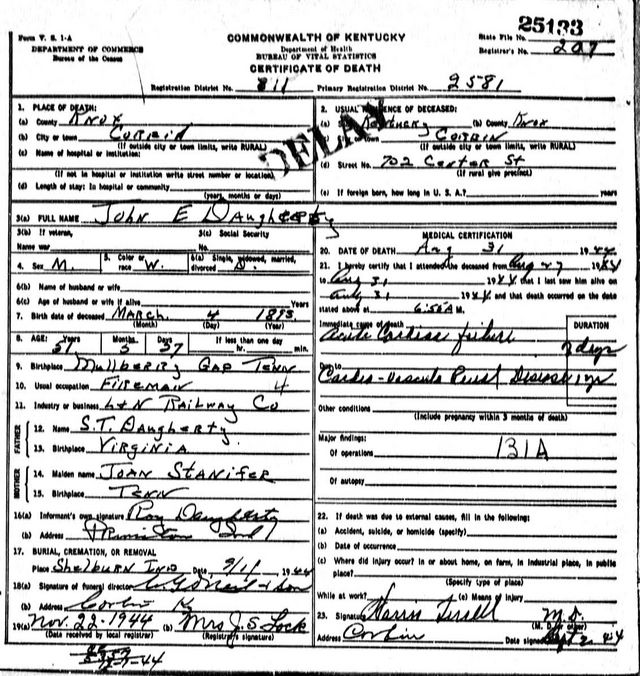 25133
Form V. S. 1-A
DEPARTMENT OF COMMERCE
Bureau of the Census
COMMONWEALTH OF KENTUCKY
Department of Health
BUREAU OF VITAL STATISTICS
CERTIFICATE OF DEATH
State File No.
Registrar's No. 207
Registration District No. 811 Primary Registration District No. 2581
DELAY
1. PLACE OF DEATH:
(a) County KNOX
(b) City or town CORBIN
(If outside city or town limits, write RURAL)
(c) Name of hospital or institution:
(If not in hospital or institution write street number or location)
(d) Length of stay: In hospital or community
(years, months or days)
2. USUAL RESIDENCE OF DECEASED:
(b) County KNOX
town CORBIN
(If outside city or town limits, write RURAL)
(d) Street No. 702 Center St
(If rural give precinct)
(e) If foreign born, how long in U. S. A.? years
3(a) FULL NAME JOHN E DAUGHERTY
3(b) If veteran, 3(c) Social Security
Name war No.
4. Sex M. 5. Color or race W. 6(a) Single, widowed, married, divorced D.
6(b) Name of husband or wife
6(c) Age of husband or wife if alive Years
7. Birth date of deceased MARCH 4 1893
(Month) (Day) (Year)
8. AGE: Years 51 Months 5 Days 27 If less than one day
hr. min.
9. Birthplace Mullberry GAP TENN
10. Usual occupation FIREMAN 4
11. Industry or business L&N RAILWAY CO
FATHER
12. Name S.T. DAUGHERTY
13. Birthplace VIRGINIA
MOTHER
14. Maiden name JOAN STANIFER
15. Birthplace TENN
16(a) Informant's own signature Roy Daugherty
(b) Address Ind
17. BURIAL, CREMATION, OR REMOVAL
Place Shelburn IND Date 9/1/ 1944
18(a) Signature of funeral director & Son
(b) Address Corbin K
19(a) Nov. 22-1944 (b) Mrs J. S. Lock
(Date received by local registrar) (Registrar's signature)
MEDICAL CERTIFICATION
20. DATE OF DEATH Aug 31 1944
21. I hereby certify that I attended the deceased from Aug 27 1944
to Aug 31 1944 that I last saw him alive on
Aug 31 1944 and that death occurred on the date
stated above at 6:50 A M.
Immediate cause of death
Acute Cardiac failure
DURATION
3 days
Due to
Cardio-Vascular Renal Disease 1 yr
Other conditions
(Include pregnancy within 3 months of death)
Major findings:
Of operations 131A
Of autopsy
22. If death was due to external causes, fill in the following:
(a) Accident, suicide, or homicide (specify)
(b) Date of occurrence
(c) Where did injury occur? In or about home, on farm, in industrial place, in public
place?
(Specify type of place)
While at work? (e) Means of injury
23. Signature Harris M.D.
(M. D. or other)
Address Corbin Date signed Sept 2 44